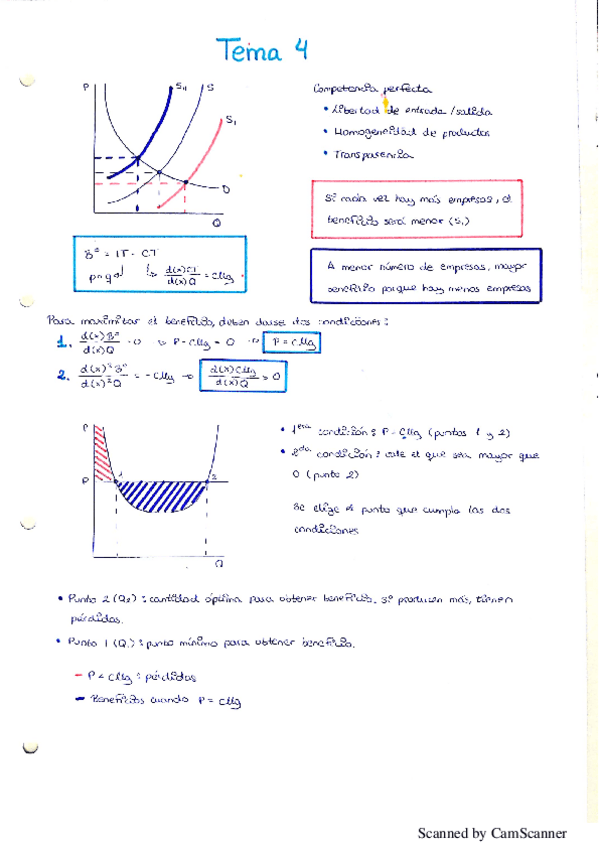 Tema 4
P
S₁₁
S
S₁
D
Q
Competencia perfecta
• Libertad de entrada / salida
• Homogeneidad de productos
• Transparencia
Si cada vez hay más empresas, el
beneficio será menor (S₁)
A menor número de empresas, mayor
beneficio porque hay menos empresas
Bº = IT - CT
p=q
d(x)CT
d(x)Q
= CMg
Para maximizar el beneficio, deben darse dos condiciones:
1. d(x)Bº
d(x)Q
= 0 → P - CMg = 0 → P = CMg
2. d(x)²Bº
d(x)²Q
= - CMg →
d(x)CMg
d(x)Q
> 0
P
P
1
2
Q
• 1era condición: P - CMg (puntos 1 y 2)
• 2da condición: este el que sea mayor que
0 (punto 2)
Se elige el punto que cumpla las dos
condiciones
• Punto 2 (Q₂): cantidad óptima para obtener beneficio. Si producen más, tienen
pérdidas.
• Punto 1 (Q₁): punto mínimo para obtener beneficio.
- P < CMg: pérdidas
- Beneficios cuando P = CMg
Scanned by CamScanner